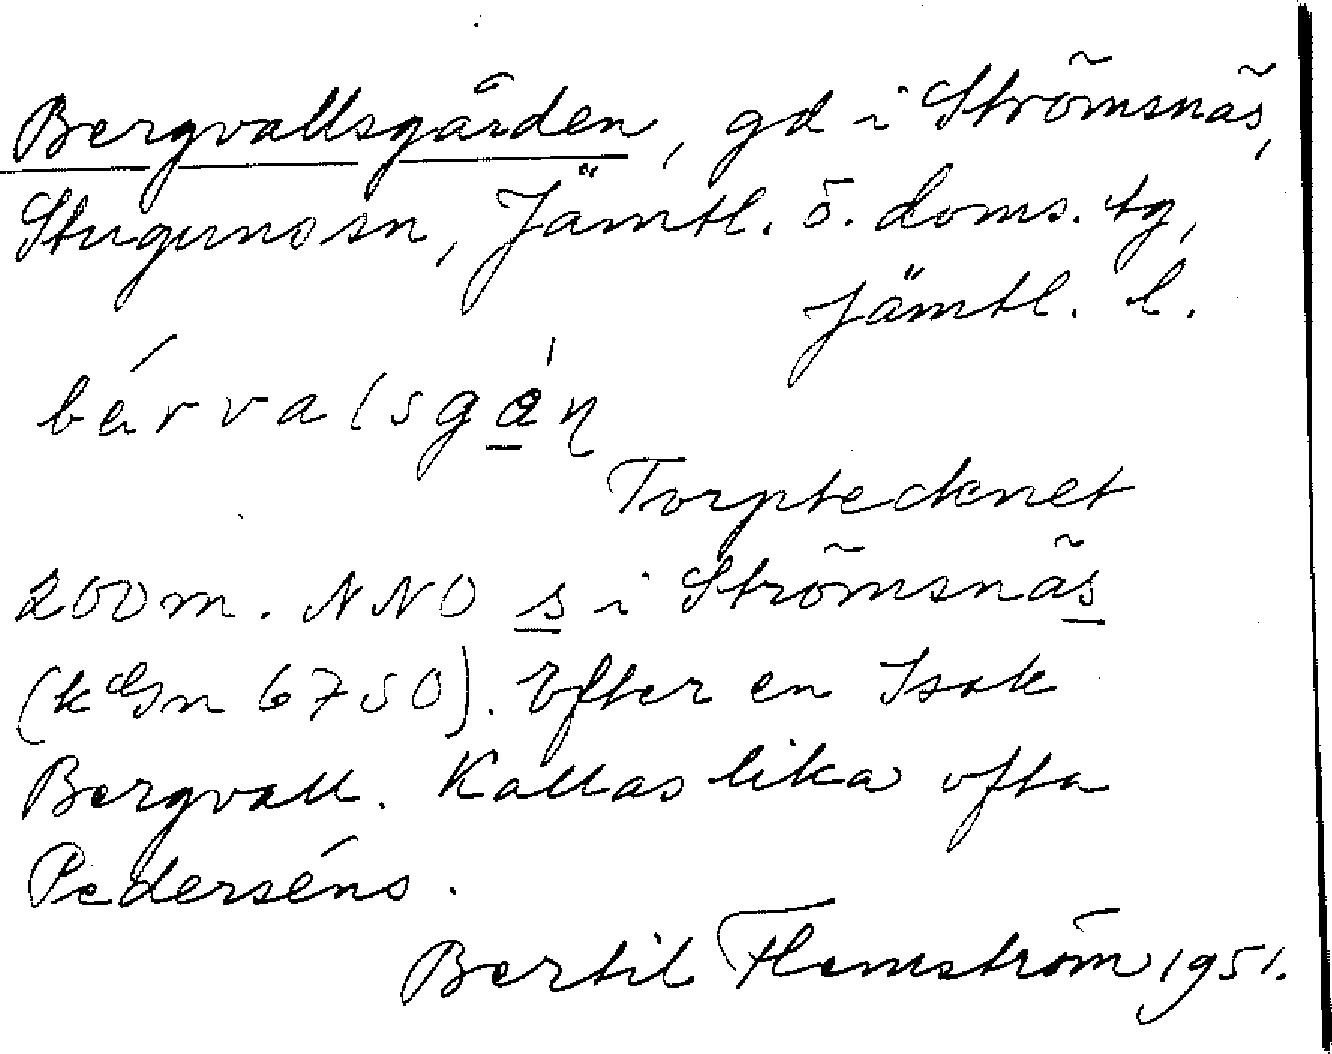 Bergvallsgården, gd i Strömsnäs,
Stuguns sn, Jämtl. ö. doms. tg,
Jämtl. l.
bérvalsgán
Torptecknet
200 m. NNO s i Strömsnäs
(k Gn 6750). Efter en Isak
Bergvall. Kallas lika ofta
Pederséns.
Bertil Flemström 1951.